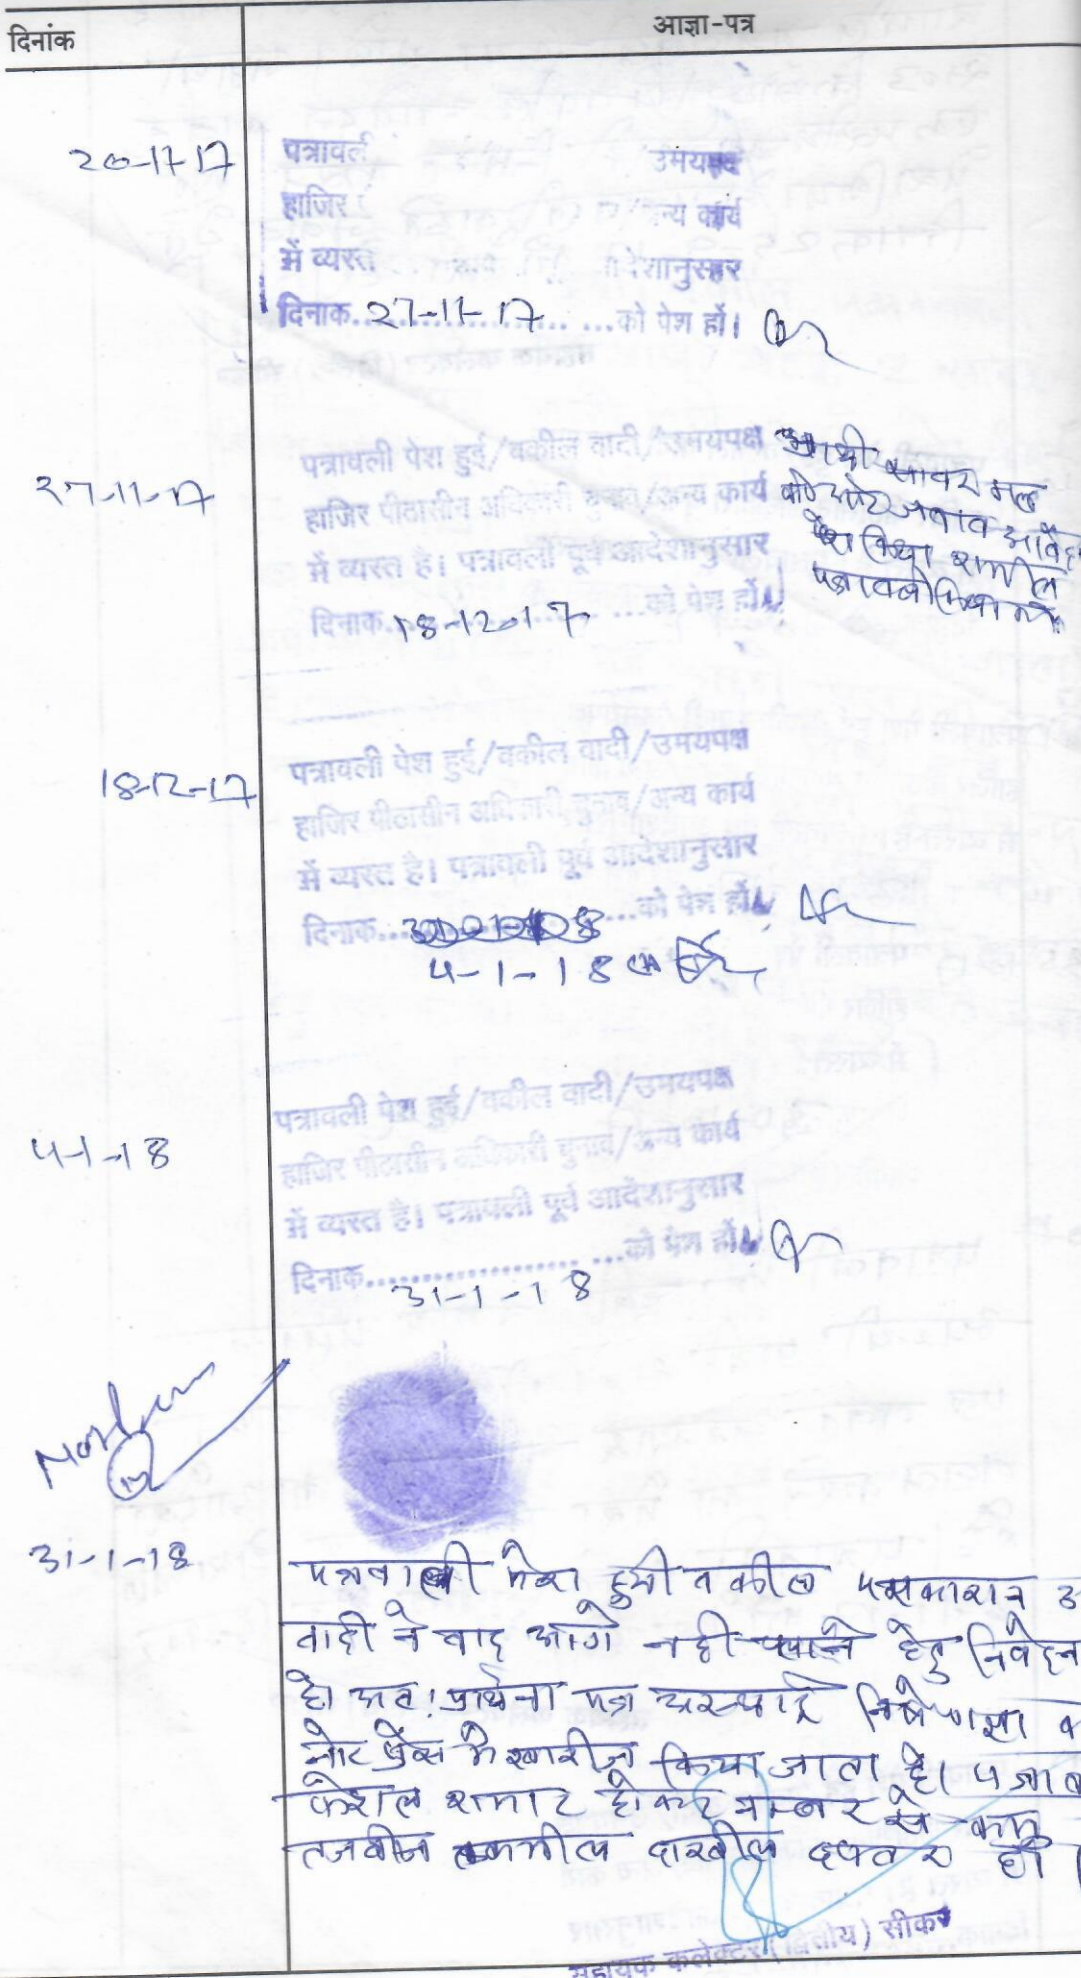 दिनांक
आज्ञा-पत्र
20-11-17
पत्रावली उभयपक्ष
हाजिर अन्य कार्य
में व्यस्त आदेशानुसार
दिनाक 27-11-17 को पेश हों।
27-11-17
पत्रावली पेश हुई/वकील वादी/उभयपक्ष
हाजिर पीठासीन अधिकारी चुनाव/अन्य कार्य
में व्यस्त है। पत्रावली पूर्व आदेशानुसार
दिनाक 18-12-17 को पेश हों।
सावर मल
जवाब
पेश किया शामील
18-12-17
पत्रावली पेश हुई/वकील वादी/उभयपक्ष
हाजिर पीठासीन अधिकारी चुनाव/अन्य कार्य
में व्यस्त है। पत्रावली पूर्व आदेशानुसार
दिनाक को पेश हों।
4-1-18
4-1-18
पत्रावली पेश हुई/वकील वादी/उभयपक्ष
हाजिर पीठासीन अधिकारी चुनाव/अन्य कार्य
में व्यस्त है। पत्रावली पूर्व आदेशानुसार
दिनाक को पेश हों।
31-1-18
31-1-18
पत्रावली पेश हुयी वकील पक्षकारान उ
वादी ने वाद आगे नही चलाने हेतु निवेदन
है। अत: प्रार्थना पत्र अस्थाई निषेधाज्ञा
नोट प्रेंस मे खारीज किया जाता है। पत्राव
फैशल शुमार होकर नम्बर से कम
तजवीज तकमील दाखील दफ्तर हो।
सहायक कलेक्टर (द्वितीय) सीकर